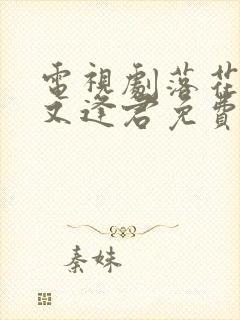 電視劇落花
又逢君免費
秦妹